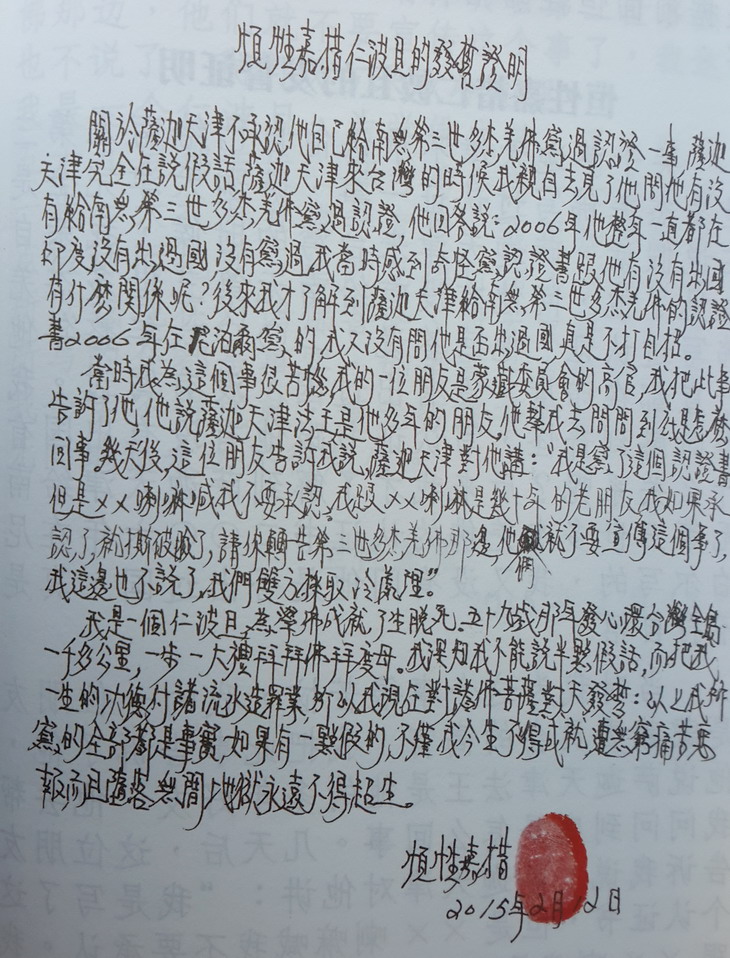 恒性嘉措仁波且的發誓證明
關於薩迦天津不承認他自己給南無第三世多杰羌佛寫過認證一事，薩迦
天津完全在說假話，薩迦天津來台灣的時候我親自去見了他問他有沒
有給南無第三世多杰羌佛寫過認證，他回答說：2006年他整年一直都在
印度沒有出過國，沒有寫過，我當時感到奇怪，寫認證書跟他有沒有出國
有什麼關係呢？後來我才了解到薩迦天津給南無第三世多杰羌佛的認證
書2006年在尼泊爾寫的，我又沒有問他是否出過國，真是不打自招。
當時我為這個事很苦惱，我的一位朋友是蒙藏委員會的高官，我把此事
告訴了他，他說薩迦天津法王是他多年的朋友，他幫我去問問到底是怎麼
回事。幾天後，這位朋友告訴我說，薩迦天津對他講：“我是寫了這個認證書
但是××喇嘛喊我不要承認。我跟××喇嘛是幾十年的老朋友，我如果承
認了，就撕破臉了，請你轉告第三世多杰羌佛那邊，他們就不要宣傳這個事了，
我這邊也不說了，我們雙方採取冷處理。”
我是一個仁波且，為學佛成就，了生脫死。五十九歲那年發心環台灣全島
一千多公里，一步一大禮拜拜佛拜度母。我深知我不能說半點假話，而把我
一生的功德付諸流水造罪業，所以我現在對諸佛菩薩對天發誓：以上我所
寫的全部都是事實，如果有一點假的，不僅我今生不得成就，遭無窮痛苦惡
報而且墮落無間地獄永遠不得超生。
恒性嘉措
2015年2月12日